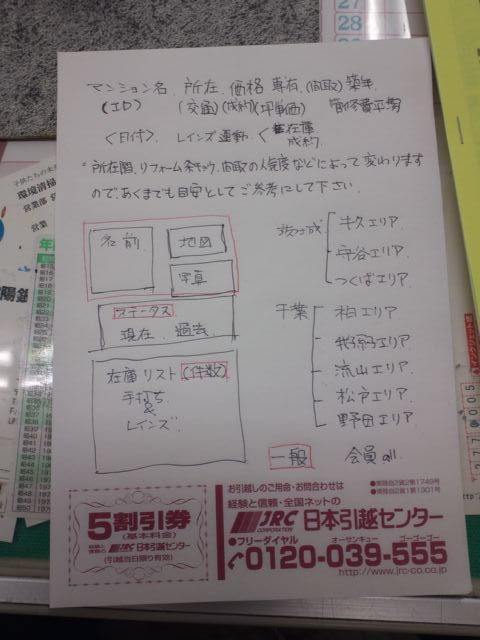 マンション名 所在 価格 専有 間取 築年
(エロ) (交通) (成約) (坪単価) 管修費平均
<日付> レインズ連動 < 在庫
成約
・所在階、リフォーム条キョウ、間取の人気度などによって変わります
のであくまでも目安としてご参考にして下さい。
名前
地図
写真
ステータス
現在 過去
在庫リスト (件数)
手打ち
&
レインズ
牛久エリア
守谷エリア
つくばエリア
千葉
柏エリア
我孫子エリア
流山エリア
松戸エリア
野田エリア
一般 会員 all.
5割引券
(基本料金)
経験と信頼の JRC 日本引越センター
(引越当日限り有効)
お引越しのご用命・お問合わせは
経験と信頼・全国ネットの
JRC CORPORATION 日本引越センター
●フリーダイヤル オーサンキュー ゴーゴーゴー
0120-039-555
http://www.jrc-co.co.jp
27
28